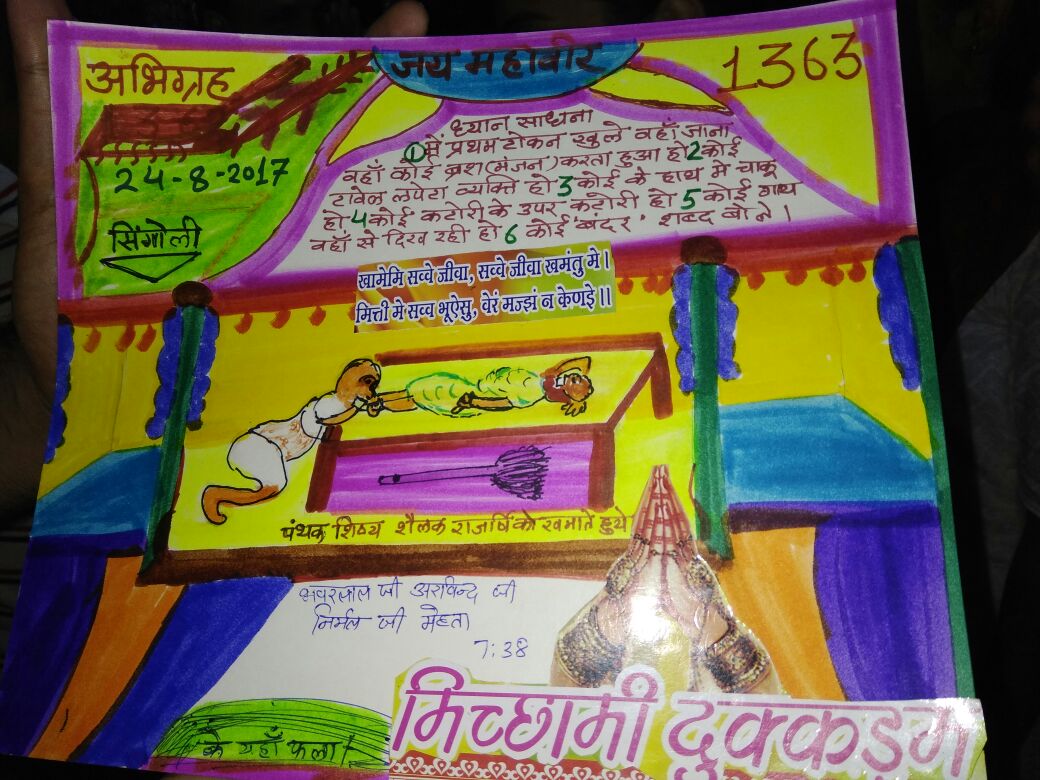 जय महावीर
अभिग्रह
1363
24-8-2017
सिंगोली
ध्यान साधना
①में प्रथम टोकन खुले वहाँ जाना
वहाँ कोई ब्रश(मंजन) करता हुआ हो 2 कोई
टावेल लपेटा व्यक्ति हो 3 कोई के हाथ मे चाकू
हो 4 कोई कटोरी के उपर कटोरी हो 5 कोई गाय
वहाँ से दिख रही हो 6 कोई 'बंदर' शब्द बोले।
खामेमि सव्वे जीवा, सव्वे जीवा खमंतु मे।
मित्ती मे सव्व भूऐसु, वेरं मज्झं न केणई॥
पंथक शिष्य शैलक राजर्षि को खमाते हुये
भवरलाल जी अरविन्द जी
निर्मल जी मेहता
7:38
के यहाँ फला
मिच्छामी दुक्कडम